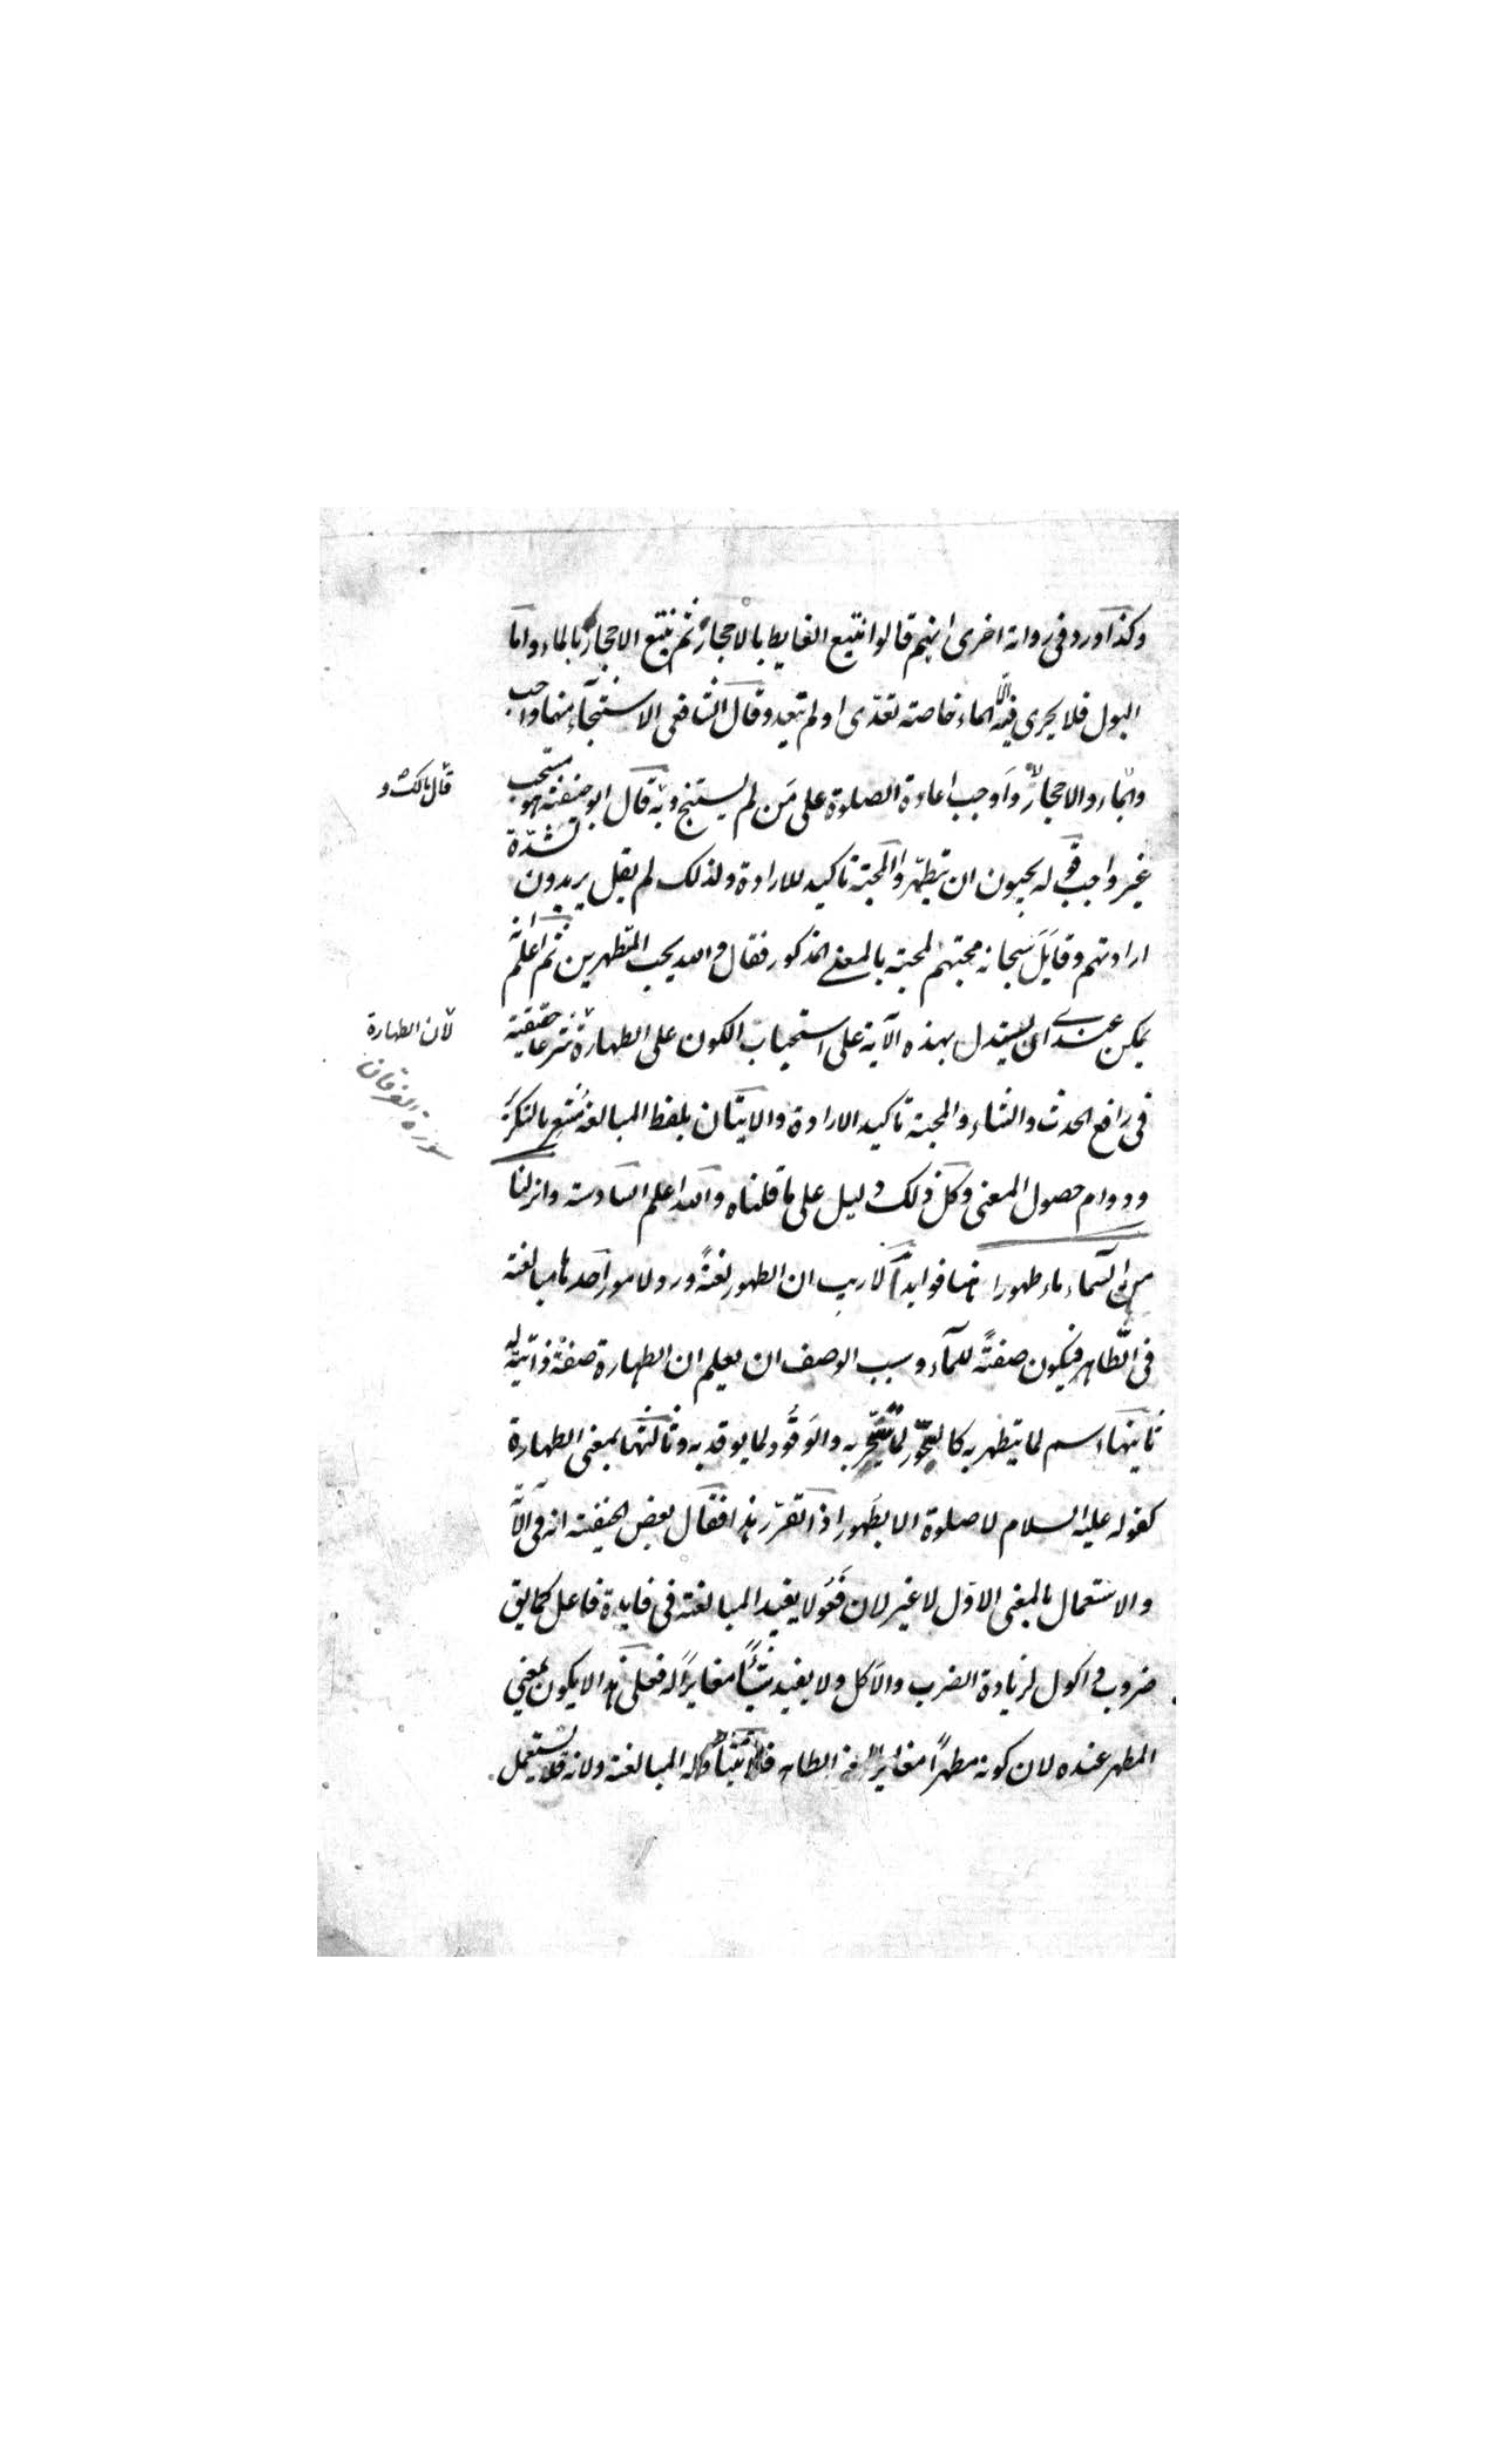 وكذا ورد فى رواية اخرى انهم قالوا نتبع الغايط بالاحجار ثم نتبع الاحجار بالماء واما
البول فلا يجرى فيه الا الماء خاصة تعدّى او لم يتعد وقال الشافعى الاستنجآء منهما واجب
بالماء والاحجار واوجب اعادة الصلوة على من لم يستنج وبه قال ابو حنيفة هو مستحب
قال مالك و
غير واجب قوله يحبون ان يتطهّروا المحبّة تاكيد للارادة ولذلك لم يقل يريدون لشدّة
ارادتهم وقابل سبحانه محبتهم لمحبته بالمعنى المذكور فقال والله يحب المتطهرين ثم اعلم انه
يمكن عندى ان يستدل بهذه الآية على استحباب الكون على الطهارة شرعا حقيقة
لان الطهارة
فى رافع الحدث والثناء والمحبة تاكيد الارادة والاتيان بلفظ المبالغة مُشعر بالتكرّر
سورة الفرقان
ودوام حصول المعنى وكل ذلك دليل على ما قلناه والله اعلم السادسة وانزلنا
من السماء ماء طهورا هنا فوايد آ لا ريب ان الطهور لغةً ورد لامور احدها مبالغة
فى الطّاهر فيكون صفةً للمآء وسبب الوصف ان يعلم ان الطهارة صفة ذاتيّة له
ثانيها اسم لما يتطهر به كالبخور لما يتبخّر به والوَقُود لما يوقد به وثالثها بمعنى الطهارة
كقوله عليه السلام لا صلوة الا بطَهور اذا تقرّر هذا فقال بعض الحنفية انه فى الآية
والاستعمال بالمعنى الاوّل لا غير لان فَعُولا يفيد المبالغة فى فايدة فاعل كما يق
ضروب واكول لزيادة الضرب والاكل ولا يفيد شيئًا مغايرًا له فعلى هذا لا يكون بمعنى
المطهر عنده لان كونه مطهرًا مغاير الطاهر فلا تتناوله المبالغة ولانه قد يستعمل